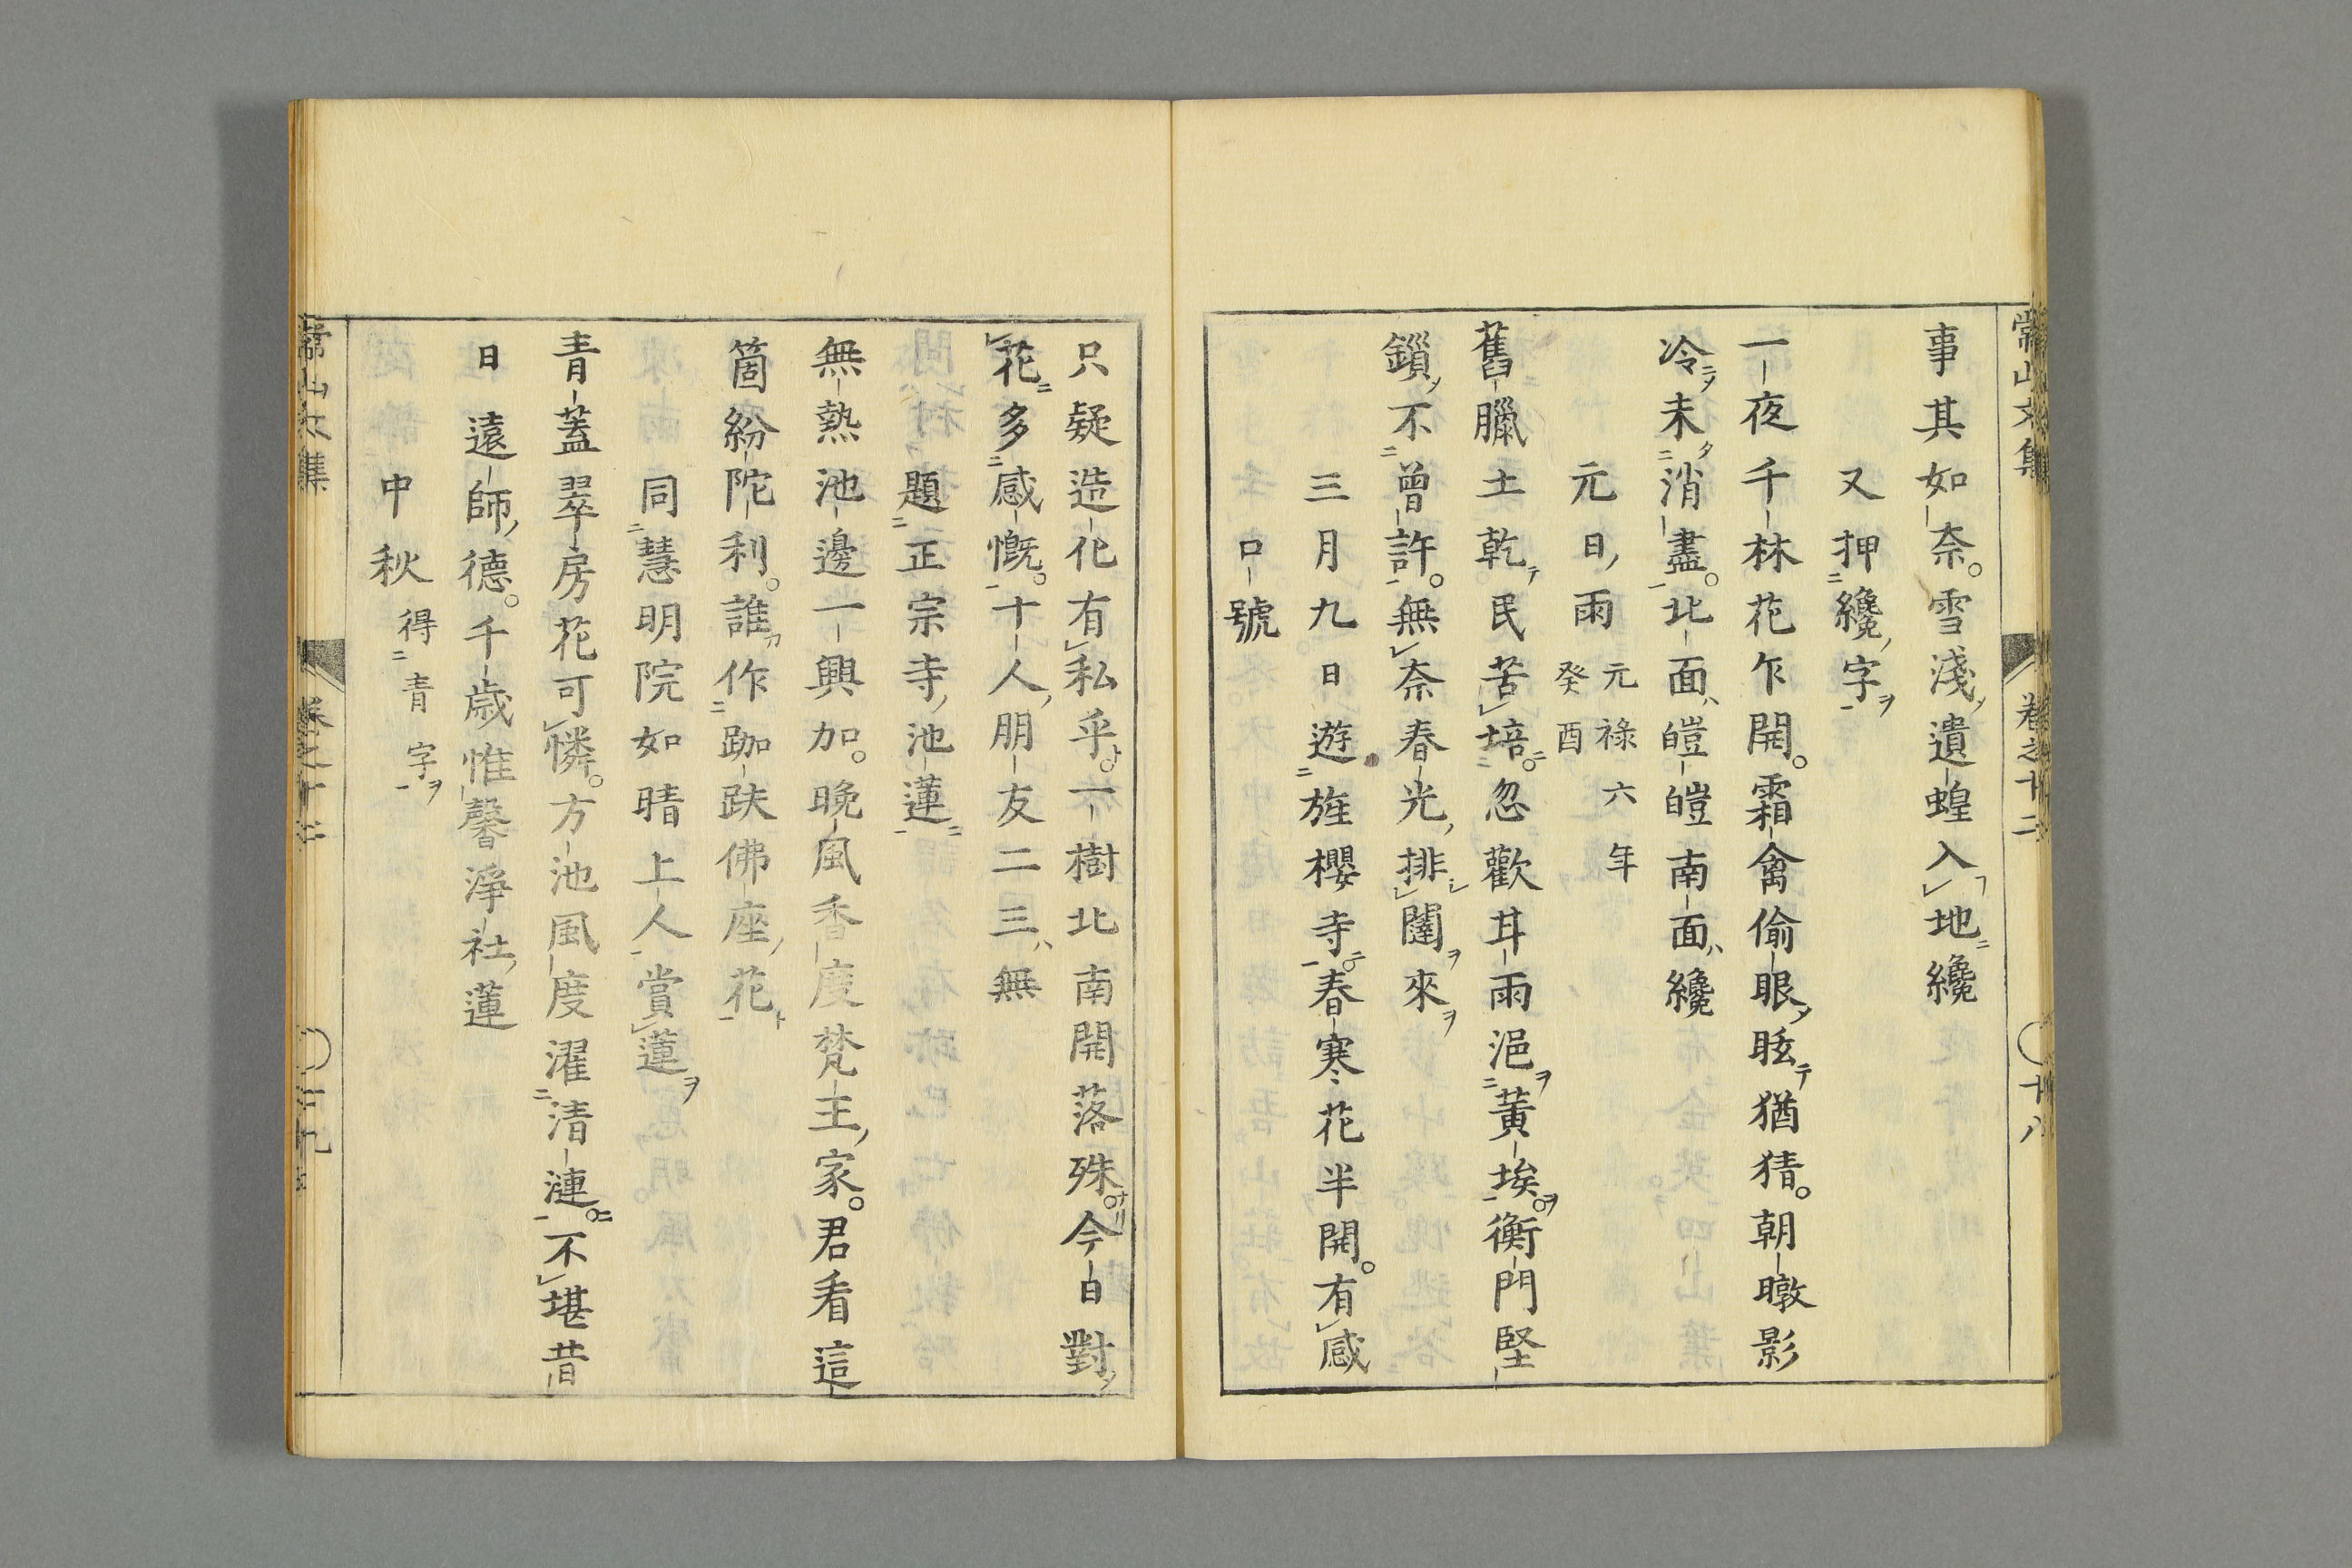 常山文集 卷之十二 〇十八
事其如奈。雪淺遺蝗入地纔
又押纔字
一夜千林花乍開。霜禽偷眼眩猶猜。朝暾影
冷未消盡。北面皚皚南面纔
元日雨 元祿六年癸酉
舊臘土乾民苦培。忽歡耳雨浥黃埃。衡門堅
鎖不曾許。無奈春光排闥來
三月九日遊旌櫻寺春寒花半開。有感
口號
只疑造化有私乎。一樹北南開落殊。今日對
花多感慨。十人朋友二三無
題正宗寺池蓮
無熱池邊一興加。晚風香度梵王家。君看這
箇紛陀利。誰作跏趺佛座花
同慧明院如晴上人賞蓮
青蓋翠房花可憐。方池風度濯清漣。不堪昔
日遠師德。千歲惟馨淨社蓮
中秋 得青字
常山文集 卷之十二 〇十九